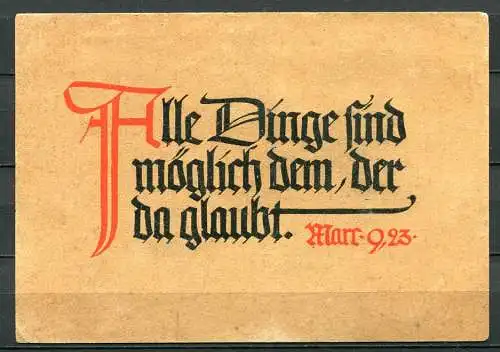 Alle Dinge sind
möglich dem, der
da glaubt. Marc. 9,23.